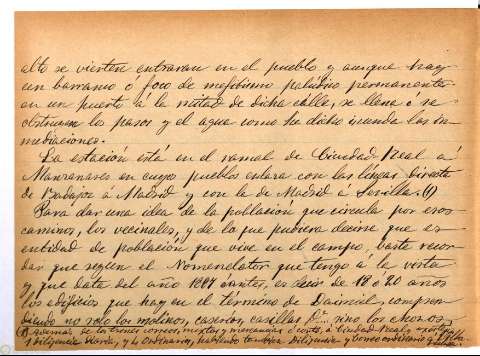 alto se vierten entraran en el pueblo y aunque hay
un barranco ó foco de mefitismo palúdico permanente
en un puerto á la mitad de dicha calle, se llena ó se
obstruyen los pasos y el agua como he dicho inunda las in-
mediaciones.
La estación está en el ramal de Ciudad-Real á
Manzanares en cuyos pueblos enlaza con las líneas directa
de Badajoz á Madrid y con la de Madrid á Sevilla. (1)
Para dar una idea de la población que circula por esos
caminos, los vecinales, y de lo que pudiera decirse que es
entidad de población que vive en el campo, baste recor-
dar que según el Nomenclator que tengo á la vista
y que data del año antes, es decir de 18 ó 20 años
los edificios que hay en el término de Daimiel, compren
diendo no solo los molinos, caserios, casillas &a sino los chozos,
(1) además de los trenes correos, mixtos y mercancias á Ciudad Real
y Diligencia diaria, y los Ordinarios, habiendo también Diligencia y Correo ordinario